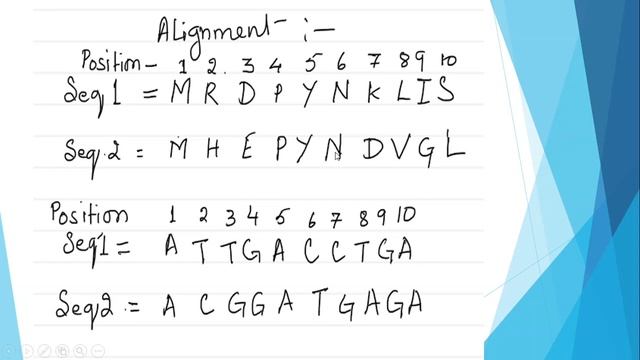 Alignment :-
Position - 1 2 3 4 5 6 7 8 9 10
Seq 1 = M R D P Y N K L I S
Seq 2 = M H E P Y N D V G L
Position 1 2 3 4 5 6 7 8 9 10
Seq 1 = A T T G A C C T G A
Seq 2 = A C G G A T G A G A